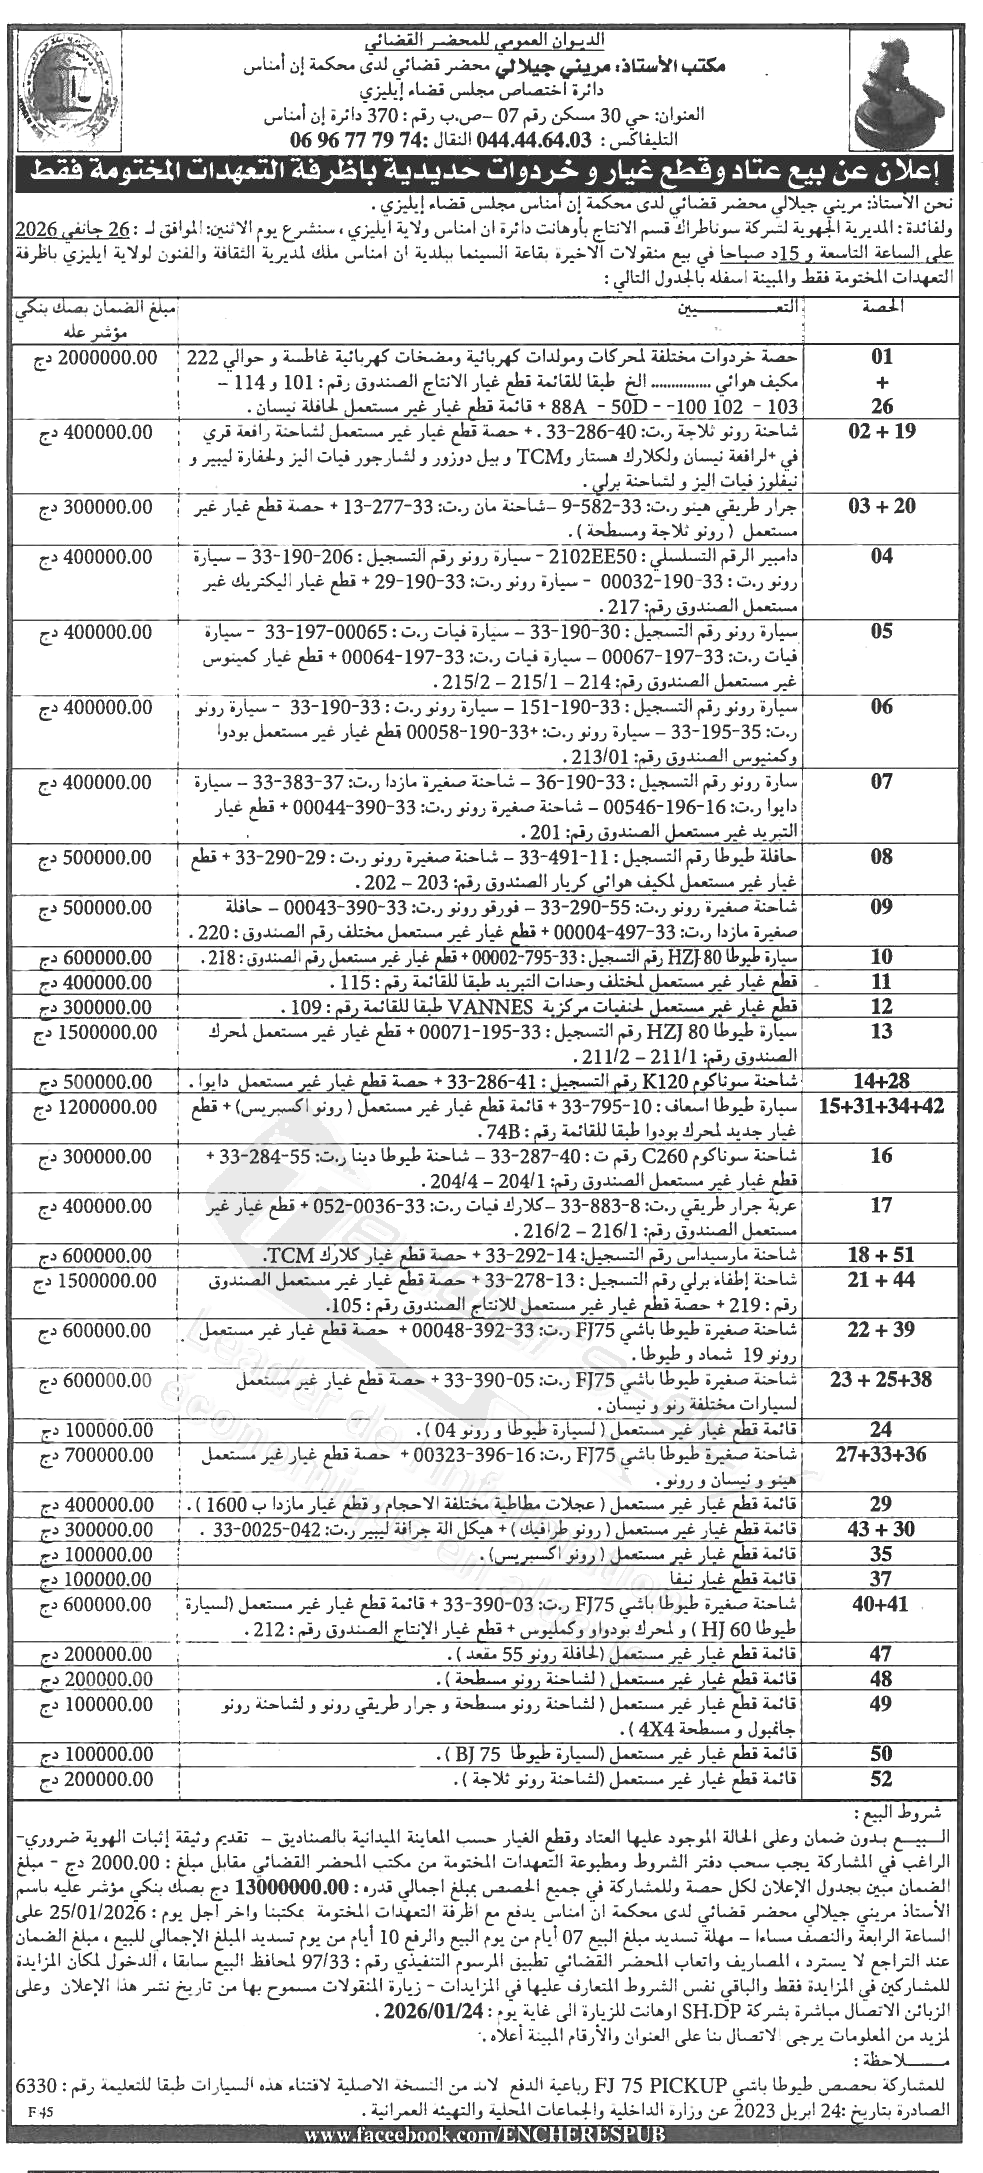 الديوان العمومي للمحضر القضائي
مكتب الأستاذ: مريني جيلالي محضر قضائي لدى محكمة إن أمناس
دائرة اختصاص مجلس قضاء إيليزي
العنوان: حي 30 مسكن رقم 07 –ص.ب رقم : 370 دائرة إن أمناس
التليفاكس : 044.44.64.03 النقال :74 79 77 96 06
إعلان عن بيع عتاد وقطع غيار و خردوات حديدية باظرفة التعهدات المختومة فقط
نحن الأستاذ: مريني جيلالي محضر قضائي لدى محكمة إن أمناس مجلس قضاء إيليزي .
ولفائدة : المديرية الجهوية لشركة سوناطراك قسم الانتاج بأوهانت دائرة ان امناس ولاية ايليزي ، سنشرع يوم الاثنين: الموافق لـ : 26 جانفي 2026
على الساعة التاسعة و 15د صباحا في بيع منقولات الاخيرة بقاعة السينما ببلدية ان امناس ملك لمديرية الثقافة والفنون لولاية ايليزي باظرفة
التعهدات المختومة فقط والمبينة اسفله بالجدول التالي :
الحصة
التعـــــــــــيين
مبلغ الضمان بصك بنكي
مؤشر عله
01
+
26
حصة خردوات مختلفة لمحركات ومولدات كهربائية ومضخات كهربائية غاطسة و حوالي 222
مكيف هوائي ............... الخ طبقا للقائمة قطع غيار الانتاج الصندوق رقم : 101 و 114 –
103 - 102 100- - 50D - 88A + قائمة قطع غيار غير مستعمل لحافلة نيسان .
2000000.00 دج
19 + 02
شاحنة رونو ثلاجة ر.ت: 40-286-33 . + حصة قطع غيار غير مستعمل لشاحنة رافعة قري
في +لرافعة نيسان ولكلارك هستار وTCM و بيل دوزور و لشارجور فيات اليز ولحفارة ليبير و
نيفلوز فيات اليز و لشاحنة برلي .
400000.00 دج
20 + 03
جرار طريقي هينو ر.ت: 33-582-9 –شاحنة مان ر.ت: 33-277-13 + حصة قطع غيار غير
مستعمل ( رونو ثلاجة ومسطحة ) .
300000.00 دج
04
دامبير الرقم التسلسلي : 2102EE50 - سيارة رونو رقم التسجيل : 206-190-33 – سيارة
رونو ر.ت : 33-190-00032 - سيارة رونو ر.ت: 33-190-29 + قطع غيار اليكتريك غير
مستعمل الصندوق رقم: 217 .
400000.00 دج
05
سيارة رونو رقم التسجيل : 30-190-33 – سيارة فيات ر.ت : 00065-197-33 - سيارة
فيات ر.ت: 33-197-00067 – سيارة فيات ر.ت: 33-197-00064 + قطع غيار كمينوس
غير مستعمل الصندوق رقم: 214 – 215/1 - 215/2 .
400000.00 دج
06
سيارة رونو رقم التسجيل : 33-190-151 – سيارة رونو ر.ت : 33-190-33 - سيارة رونو
ر.ت: 35-195-33 – سيارة رونو ر.ت: +33-190-00058 قطع غيار غير مستعمل بودوا
وكمنيوس الصندوق رقم: 213/01 .
400000.00 دج
07
سارة رونو رقم التسجيل : 33-190-36 – شاحنة صغيرة مازدا ر.ت: 37-383-33 – سيارة
دايوا ر.ت: 16-196-00546 – شاحنة صغيرة رونو ر.ت: 33-390-00044 + قطع غيار
التبريد غير مستعمل الصندوق رقم: 201 .
400000.00 دج
08
حافلة طيوطا رقم التسجيل : 11-491-33 – شاحنة صغيرة رونو ر.ت : 29-290-33 + قطع
غيار غير مستعمل لمكيف هوائي كريار الصندوق رقم: 203 – 202 .
500000.00 دج
09
شاحنة صغيرة رونو ر.ت: 55-290-33 – فورقو رونو ر.ت: 33-390-00043 – حافلة
صغيرة مازدا ر.ت: 33-497-00004 + قطع غيار غير مستعمل مختلف رقم الصندوق : 220 .
500000.00 دج
10
سيارة طيوطا HZJ 80 رقم التسجيل : 33-795-00002 + قطع غيار غير مستعمل رقم الصندوق : 218 .
600000.00 دج
11
قطع غيار غير مستعمل لمختلف وحدات التبريد طبقا للقائمة رقم : 115 .
400000.00 دج
12
قطع غيار غير مستعمل لحنفيات مركزية VANNES طبقا للقائمة رقم : 109 .
300000.00 دج
13
سيارة طيوطا HZJ 80 رقم التسجيل : 33-195-00071 + قطع غيار غير مستعمل لمحرك
الصندوق رقم: 211/1 – 211/2 .
1500000.00 دج
14+28
شاحنة سوناكوم K120 رقم التسجيل : 41-286-33 + حصة قطع غيار غير مستعمل دايوا .
500000.00 دج
15+31+34+42
سيارة طيوطا اسعاف : 10-795-33 + قائمة قطع غيار غير مستعمل ( رونو اكسبريس) + قطع
غيار جديد لمحرك بودوا طبقا للقائمة رقم : 74B .
1200000.00 دج
16
شاحنة سوناكوم C260 رقم ت : 40-287-33 – شاحنة طيوطا دينا ر.ت: 55-284-33 +
قطع غيار غير مستعمل الصندوق رقم: 204/1 – 204/4 .
300000.00 دج
17
عربة جرار طريقي ر.ت: 8-883-33 –كلارك فيات ر.ت: 33-0036-052 + قطع غيار غير
مستعمل الصندوق رقم: 216/1 – 216/2 .
400000.00 دج
51 + 18
شاحنة مارسيداس رقم التسجيل: 14-292-33 + حصة قطع غيار كلارك TCM.
600000.00 دج
44 + 21
شاحنة إطفاء برلي رقم التسجيل : 13-278-33 + حصة قطع غيار غير مستعمل الصندوق
رقم : 219 + حصة قطع غيار غير مستعمل للانتاج الصندوق رقم : 105.
1500000.00 دج
39 + 22
شاحنة صغيرة طيوطا باشي FJ75 ر.ت: 33-392-00048 + حصة قطع غيار غير مستعمل
رونو 19 شماد و طيوطا .
600000.00 دج
23 + 25+38
شاحنة صغيرة طيوطا باشي FJ75 ر.ت: 05-390-33 + حصة قطع غيار غير مستعمل
لسيارات مختلفة رنو و نيسان .
600000.00 دج
24
قائمة قطع غيار غير مستعمل ( لسيارة طيوطا و رونو 04 ) .
100000.00 دج
27+33+36
شاحنة صغيرة طيوطا باشي FJ75 ر.ت: 16-396-00323 + حصة قطع غيار غير مستعمل
هينو و نيسان و رونو .
700000.00 دج
29
قائمة قطع غيار غير مستعمل ( عجلات مطاطية مختلفة الاحجام و قطع غيار مازدا ب 1600 ) .
400000.00 دج
30 + 43
قائمة قطع غيار غير مستعمل ( رونو طرافيك ) + هيكل الة جرافة ليبير ر.ت: 042-0025-33 .
300000.00 دج
35
قائمة قطع غيار غير مستعمل ( رونو اكسبريس) .
100000.00 دج
37
قائمة قطع غيار نيفا
100000.00 دج
40+41
شاحنة صغيرة طيوطا باشي FJ75 ر.ت: 03-390-33 + قائمة قطع غيار غير مستعمل (لسيارة
طيوطا HJ 60 ) و لمحرك بودواو وكمليوس + قطع غيار الإنتاج الصندوق رقم : 212 .
600000.00 دج
47
قائمة قطع غيار غير مستعمل (لحافلة رونو 55 مقعد ) .
200000.00 دج
48
قائمة قطع غيار غير مستعمل ( لشاحنة رونو مسطحة ) .
200000.00 دج
49
قائمة قطع غيار غير مستعمل ( لشاحنة رونو مسطحة و جرار طريقي رونو و لشاحنة رونو
جانمبول و مسطحة 4X4 ) .
100000.00 دج
50
قائمة قطع غيار غير مستعمل (لسيارة طيوطا BJ 75 ) .
100000.00 دج
52
قائمة قطع غيار غير مستعمل (لشاحنة رونو ثلاجة ) .
200000.00 دج
شروط البيع :
الـــبيـــع بـدون ضمان وعلى الحالة الموجود عليها العتاد وقطع الغيار حسب المعاينة الميدانية بالصناديق – تقديم وثيقة إثبات الهوية ضروري-
الراغب في المشاركة يجب سحب دفتر الشروط ومطبوعة التعهدات المختومة من مكتب المحضر القضائي مقابل مبلغ : 2000.00 دج - مبلغ
الضمان مبين بجدول الإعلان لكل حصة وللمشاركة في جميع الحصص بمبلغ اجمالي قدره : 13000000.00 دج بصك بنكي مؤشر عليه باسم
الأستاذ مريني جيلالي محضر قضائي لدى محكمة ان امناس يدفع مع اظرفة التعهدات المختومة بمكتبنا واخر اجل يوم : 25/01/2026 على
الساعة الرابعة والنصف مساءا – مهلة تسديد مبلغ البيع 07 أيام من يوم البيع والرفع 10 أيام من يوم تسديد المبلغ الإجمالي للبيع ، مبلغ الضمان
عند التراجع لا يسترد ، المصاريف واتعاب المحضر القضائي تطبيق المرسوم التنفيذي رقم : 97/33 لمحافظ البيع سابقا ، الدخول لمكان المزايدة
للمشاركين في المزايدة فقط والباقي نفس الشروط المتعارف عليها في المزايدات - زيارة المنقولات مسموح بها من تاريخ نشر هذا الإعلان وعلى
الزبائن الاتصال مباشرة بشركة SH.DP اوهانت للزيارة الى غاية يوم : 2026/01/24 .
لمزيد من المعلومات يرجى الاتصال بنا على العنوان والأرقام المبينة أعلاه .
مـــــلاحظة :
للمشاركة بحصص طيوطا باشي FJ 75 PICKUP رباعية الدفع لابد من النسخة الاصلية لاقتناء هذه السيارات طبقا للتعليمة رقم : 6330
الصادرة بتاريخ :24 ابريل 2023 عن وزارة الداخلية والجماعات المحلية والتهيئة العمرانية .
F 45
www.faceebook.com/ENCHERESPUB